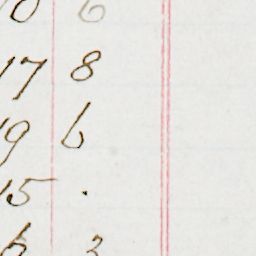 10 6
17 8
19 6
15 .
6 3